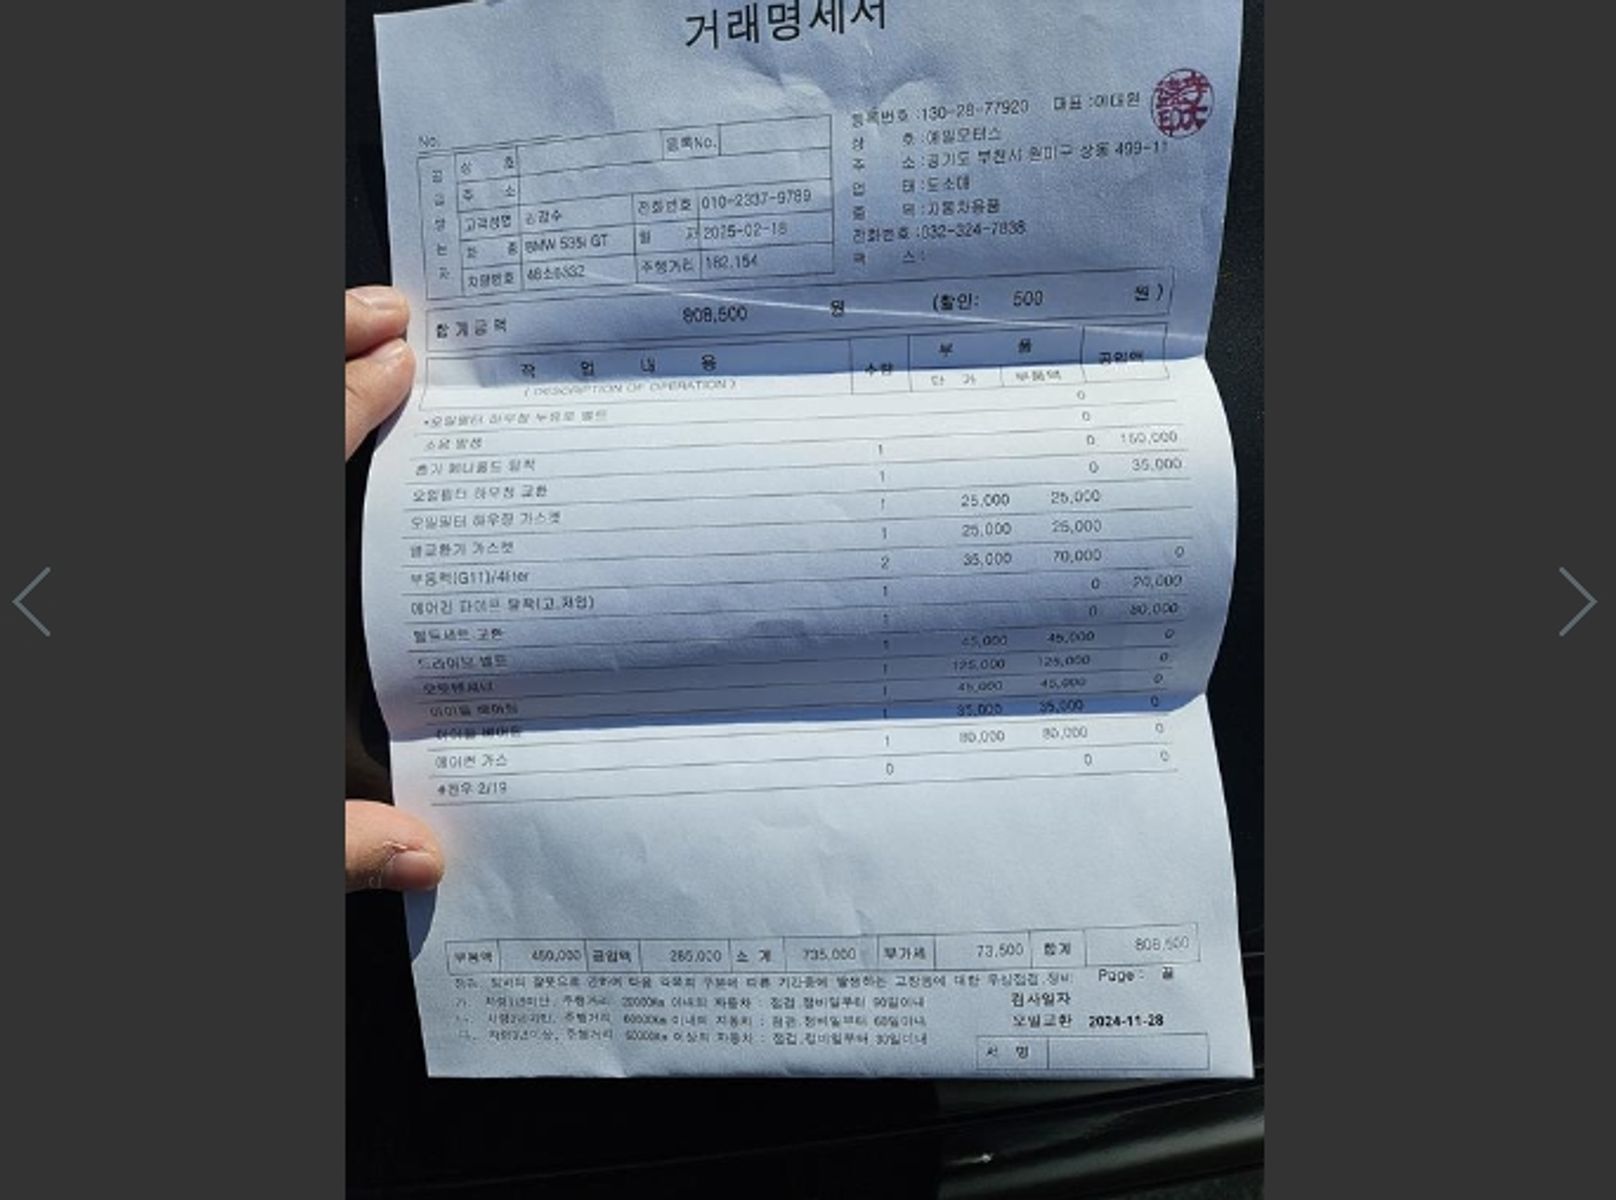 거래명세서
No.
등록번호 :130-28-77920 대표 :이대원
상 호 등록No. 상 호 :에밀모터스
주 소 주 소 :경기도 부천시 원미구 상동 499-11
업 태 :도소매
고객성명 전화번호 010-2337-9789 종 목 :자동차용품
차 종 BMW 535i GT 일 자 2025-02-18 전화번호 :032-324-7838
차량번호 48소6332 주행거리 182,154 팩 스 :
공급받는자
합계금액 808,500 원 (할인: 500 원 )
작 업 내 용 수량 부 품 공임액
( DESCRIPTION OF OPERATION ) 단 가 부품액
*오일필터 하우징 누유로 벨트 0
소음 발생 0
흡기 매니폴드 탈착 1 0 150,000
오일필터 하우징 교환 1 0 35,000
오일필터 하우징 가스켓 1 25,000 25,000
열교환기 가스켓 1 25,000 25,000
부동액(G11)/4liter 2 35,000 70,000 0
에어컨 파이프 탈착(고,저압) 1 0 20,000
벨트세트 교환 1 0 80,000
드라이브 벨트 1 45,000 45,000 0
오토텐셔너 1 125,000 125,000 0
아이들 베어링 1 45,000 45,000 0
아이들 베어링 1 35,000 35,000 0
에어컨 가스 1 80,000 80,000 0
#전우 2/19 0 0 0
부품액 450,000 공임액 285,000 소 계 735,000 부가세 73,500 합계 808,500
Page : 끝
가. 차령1년미만, 주행거리 20000Km 이내의 자동차 : 점검,정비일부터 90일이내
검사일자
나. 차령3년미만, 주행거리 60000Km 이내의 자동차 : 점검,정비일부터 60일이내
오일교환 2024-11-28
다. 차령3년이상, 주행거리 60000Km 이상의 자동차 : 점검,정비일부터 30일이내
서 명